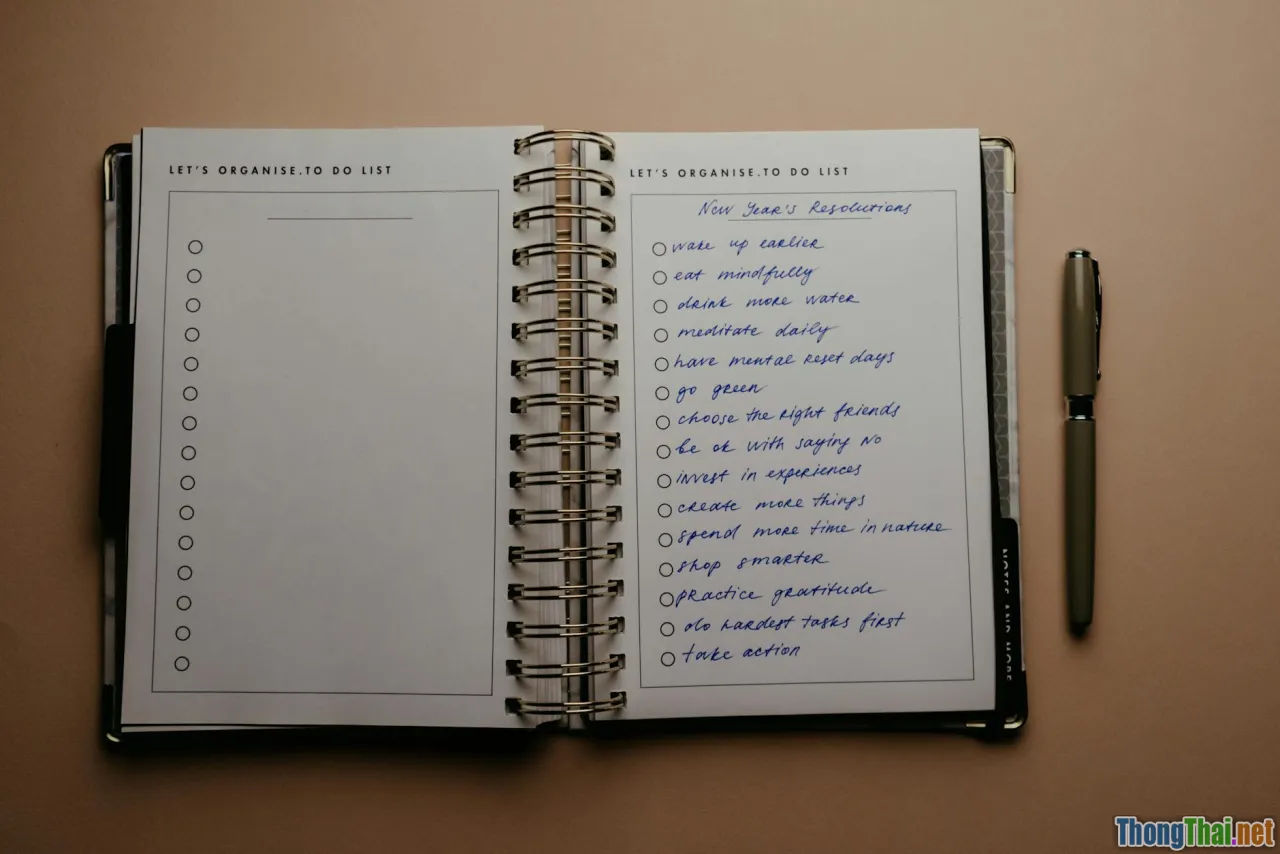 LET'S ORGANISE.TO DO LIST
LET'S ORGANISE.TO DO LIST
New Year's Resolutions
wake up earlier
eat mindfully
drink more water
meditate daily
have mental reset days
go green
choose the right friends
be ok with saying No
invest in experiences
create more things
spend more time in nature
shop smarter
practice gratitude
do hardest tasks first
take action
NOTES AND MORE
ThongThai.net